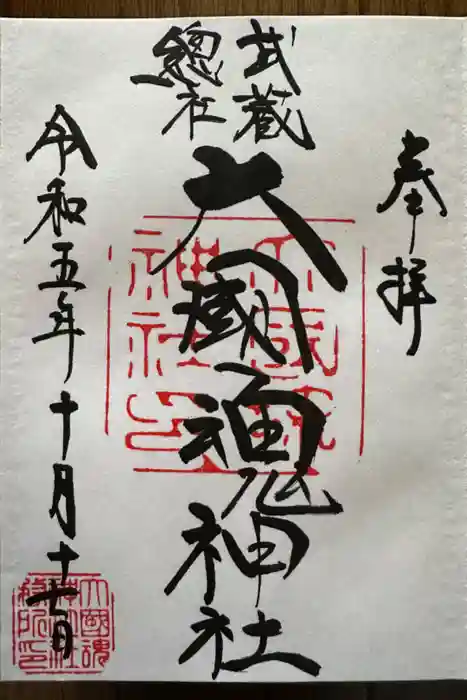 奉拝
武蔵
總社
大國魂神社
大國魂
神社印
令和五年十月十七日
大國魂
神社社
務所印